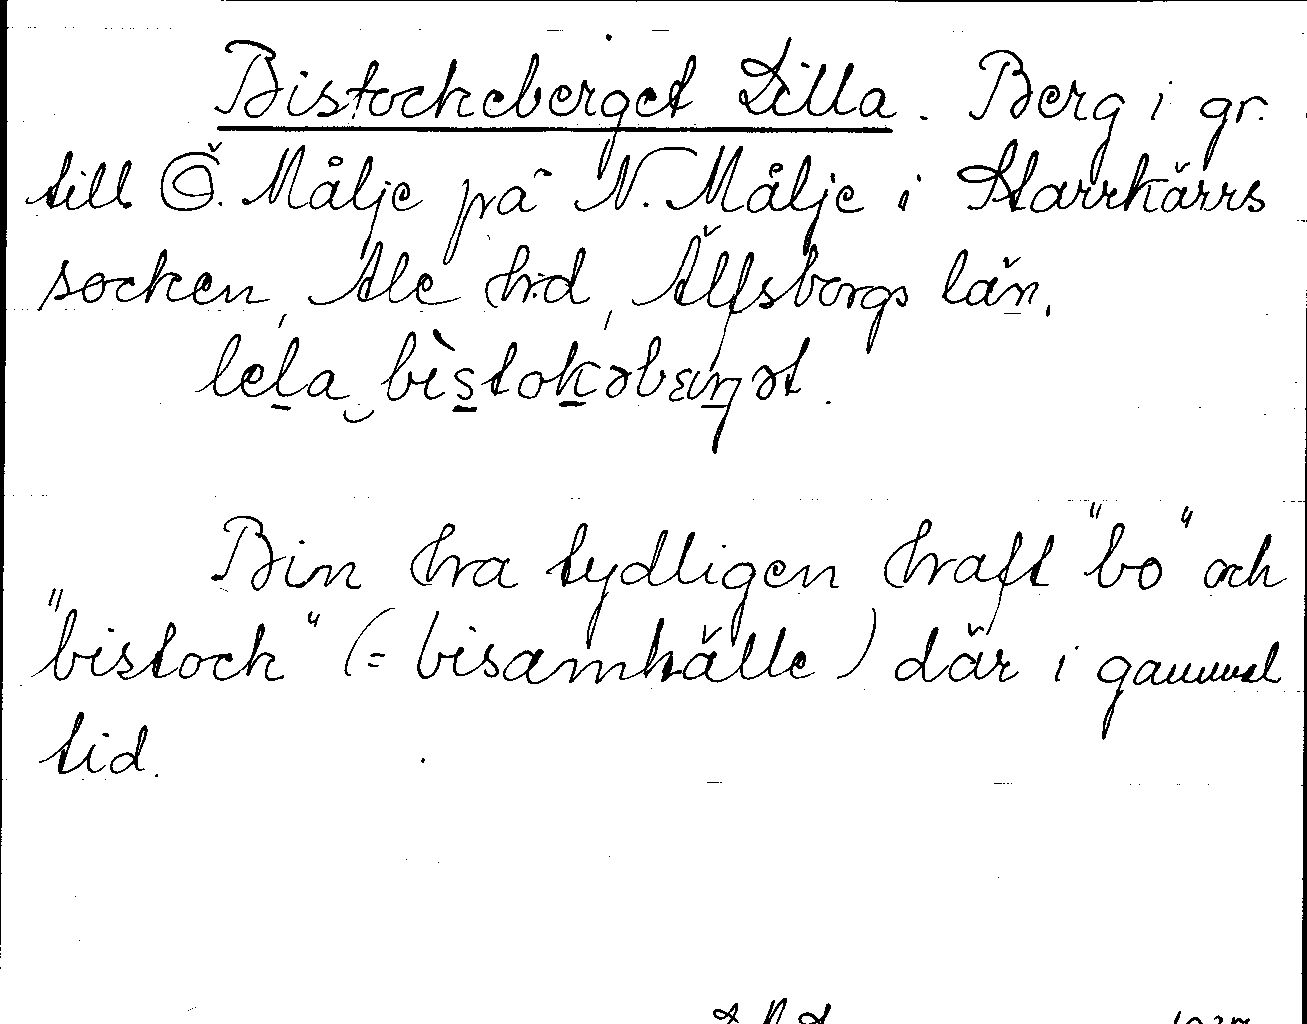 Bistockeberget Lilla. Berg i gr.
till Ö. Målje på N. Målje i Starrkärrs
socken, Ale h:d, Älfsborgs län.
lela bìstokəbærjət.
Bin ha tydligen haft "bo" och
"bistock" (= bisamhälle) där i gammal
tid.